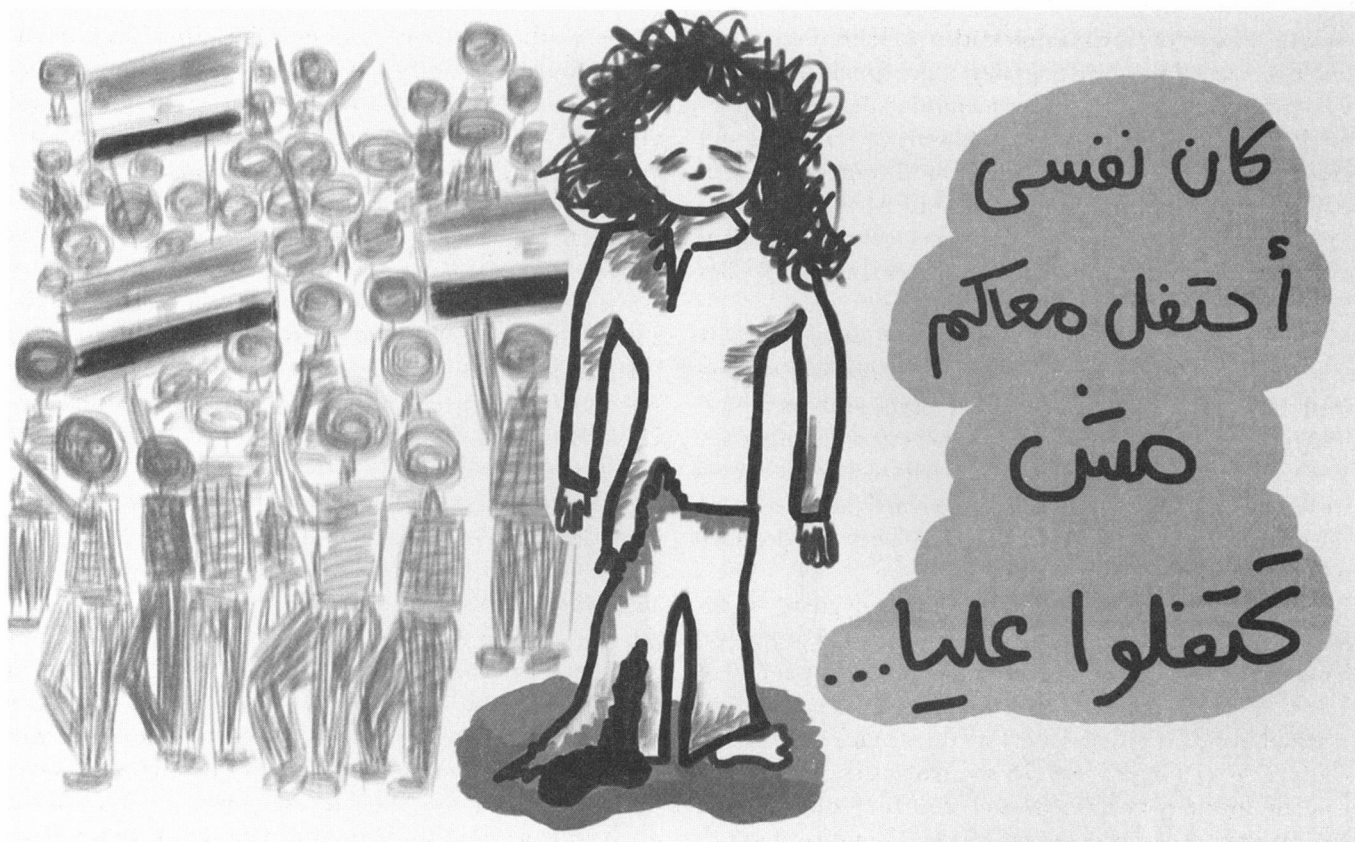 كان نفسى
أحتفل معاكم
مش
تحتفلوا عليا...